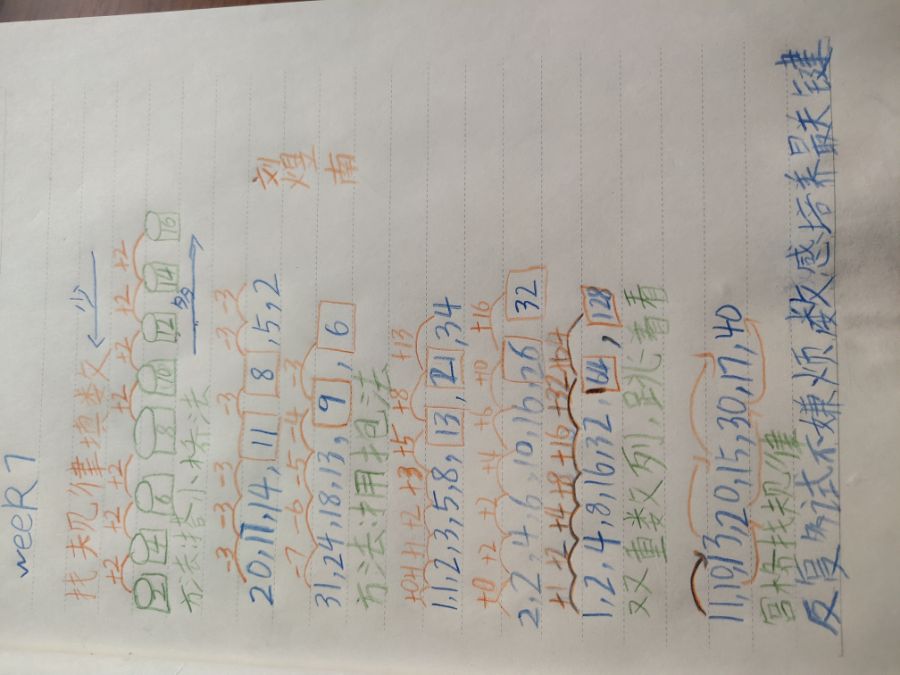 week 1
找规律填数文 少
+2 +2 +2 +2 +2 +2 +2
2 4 6 8 10 12 14 16
方法搭小桥法 多
-3 -3 -3 -3 -3 -3
20,17,14,11,8,5,2
刘煌南
-7 -6 -5 -4 -3
31,24,18,13,9,6
方法拥抱法
+0 +1 +1 +2 +3 +5 +8 +13
1,1,2,3,5,8,13,21,34
+0 +2 +2 +4 +6 +10 +16
2,2,4,6,10,16,26,32
+1 +2 +4 +8 +16 +32 +64
1,2,4,8,16,32,64,128
双重数列,跳着看
11,10,13,20,15,30,17,40
宫格找规律
反复多试不嫌烦数感培养最关键